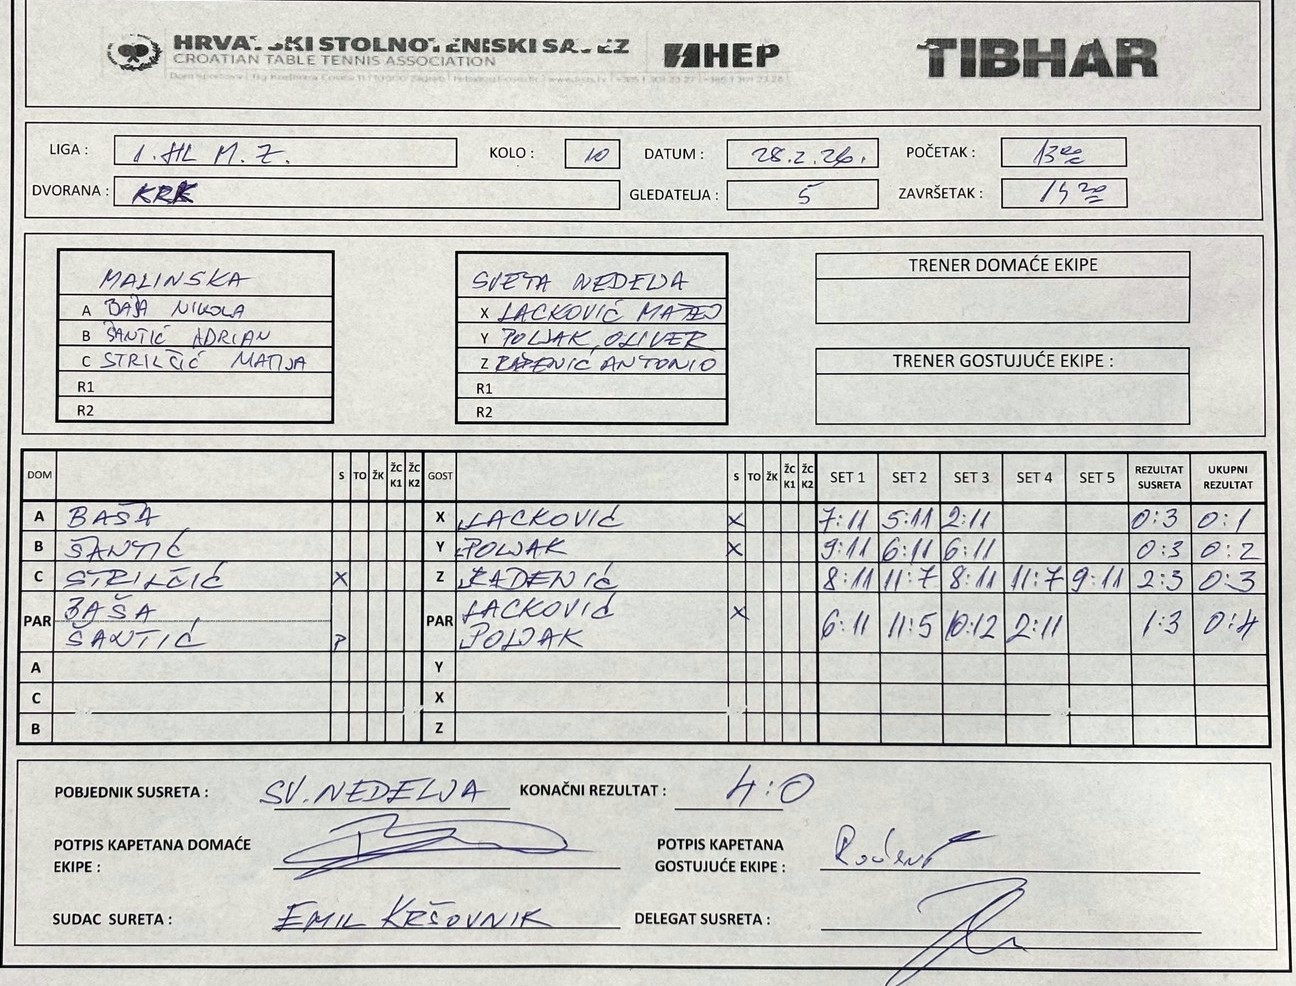 HRVATSKI STOLNOTENISKI SAVEZ
CROATIAN TABLE TENNIS ASSOCIATION
HEP
TIBHAR
LIGA : 1. HL M. Z. KOLO : 10 DATUM : 28.2.26. POČETAK : 13 00
DVORANA : KRK GLEDATELJA : 5 ZAVRŠETAK :
MALINSKA
A BAŠA NIKOLA
B ŠANTIĆ ADRIAN
C STRILČIĆ MATIJA
R1
R2
SVETA NEDELJA
X LACKOVIĆ MATEJ
Y POLJAK OLIVER
Z RAĐENIĆ ANTONIO
R1
R2
TRENER DOMAĆE EKIPE
TRENER GOSTUJUĆE EKIPE :
DOM S TO ŽK ŽC K1 ŽC K2 GOST S TO ŽK ŽC K1 ŽC K2 SET 1 SET 2 SET 3 SET 4 SET 5 REZULTAT SUSRETA UKUPNI REZULTAT
A BAŠA X LACKOVIĆ X 7:11 5:11 2:11 0:3 0:1
B ŠANTIĆ Y POLJAK X 9:11 6:11 6:11 0:3 0:2
C STRILČIĆ X Z RAĐENIĆ 8:11 11:7 8:11 11:7 9:11 2:3 0:3
PAR BAŠA PAR LACKOVIĆ X 6:11 11:5 10:12 2:11 1:3 0:4
ŠANTIĆ POLJAK
A Y
C X
B Z
POBJEDNIK SUSRETA : SV. NEDELJA KONAČNI REZULTAT : 4:0
POTPIS KAPETANA DOMAĆE EKIPE :
POTPIS KAPETANA GOSTUJUĆE EKIPE :
SUDAC SURETA : EMIL KRŠOVNIK DELEGAT SUSRETA :